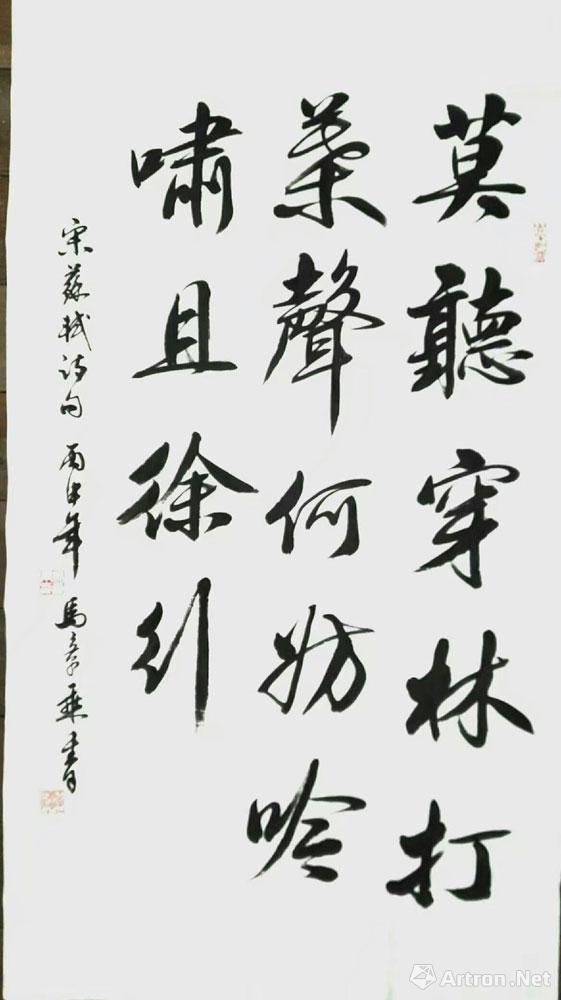 莫聽穿林打
葉聲何妨吟
嘯且徐行
宋蘇軾詩句 丙申年 馬 書
Artron.Net